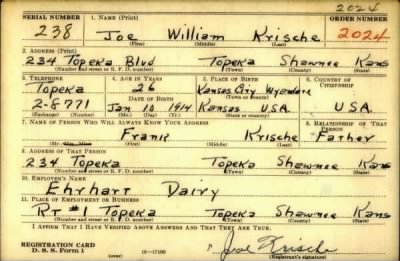 2024
SERIAL NUMBER 1. NAME (Print) ORDER NUMBER
238 Joe William Krische 2024
(First) (Middle) (Last)
2. ADDRESS (Print)
234 Topeka Blvd Topeka Shawnee Kans
(Number and street or R. F. D. number) (Town) (County) (State)
3. TELEPHONE 4. AGE IN YEARS 5. PLACE OF BIRTH 6. COUNTRY OF CITIZENSHIP
Topeka 26 Kansas City Wyandotte
DATE OF BIRTH (Town) (County)
2-8771 Jan 10 1914 Kansas USA USA
(Exchange) (Number) (Mo.) (Day) (Yr.) (State) (Country)
7. NAME OF PERSON WHO WILL ALWAYS KNOW YOUR ADDRESS 8. RELATIONSHIP OF THAT PERSON
Frank Krische Father
(Mr., Mrs., Miss) (First) (Middle) (Last)
9. ADDRESS OF THAT PERSON
234 Topeka Topeka Shawnee Kans
(Number and street or R. F. D. number) (Town) (County) (State)
10. EMPLOYER'S NAME
Ehrhart Dairy
11. PLACE OF EMPLOYMENT OR BUSINESS
Rt #1 Topeka Topeka Shawnee Kans
(Number and street or R. F. D. number) (Town) (County) (State)
I AFFIRM THAT I HAVE VERIFIED ABOVE ANSWERS AND THAT THEY ARE TRUE.
REGISTRATION CARD
D. S. S. Form 1 (over) 16—17105 Joe Krische
(Registrant's signature)